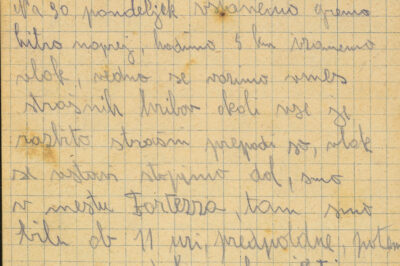 Na 30 pondeljek vstanemo gremo
hitro naprej, hodimo 5 km vzamemo
vlak, vedno se vozimo vmes
strašnih hribov okoli vse je
razbito strašni prepadi so, vlak
se ustavi stopimo dol, smo
v mestu Fortezza, tam smo
bili ob 11 uri, predpoldne, potem